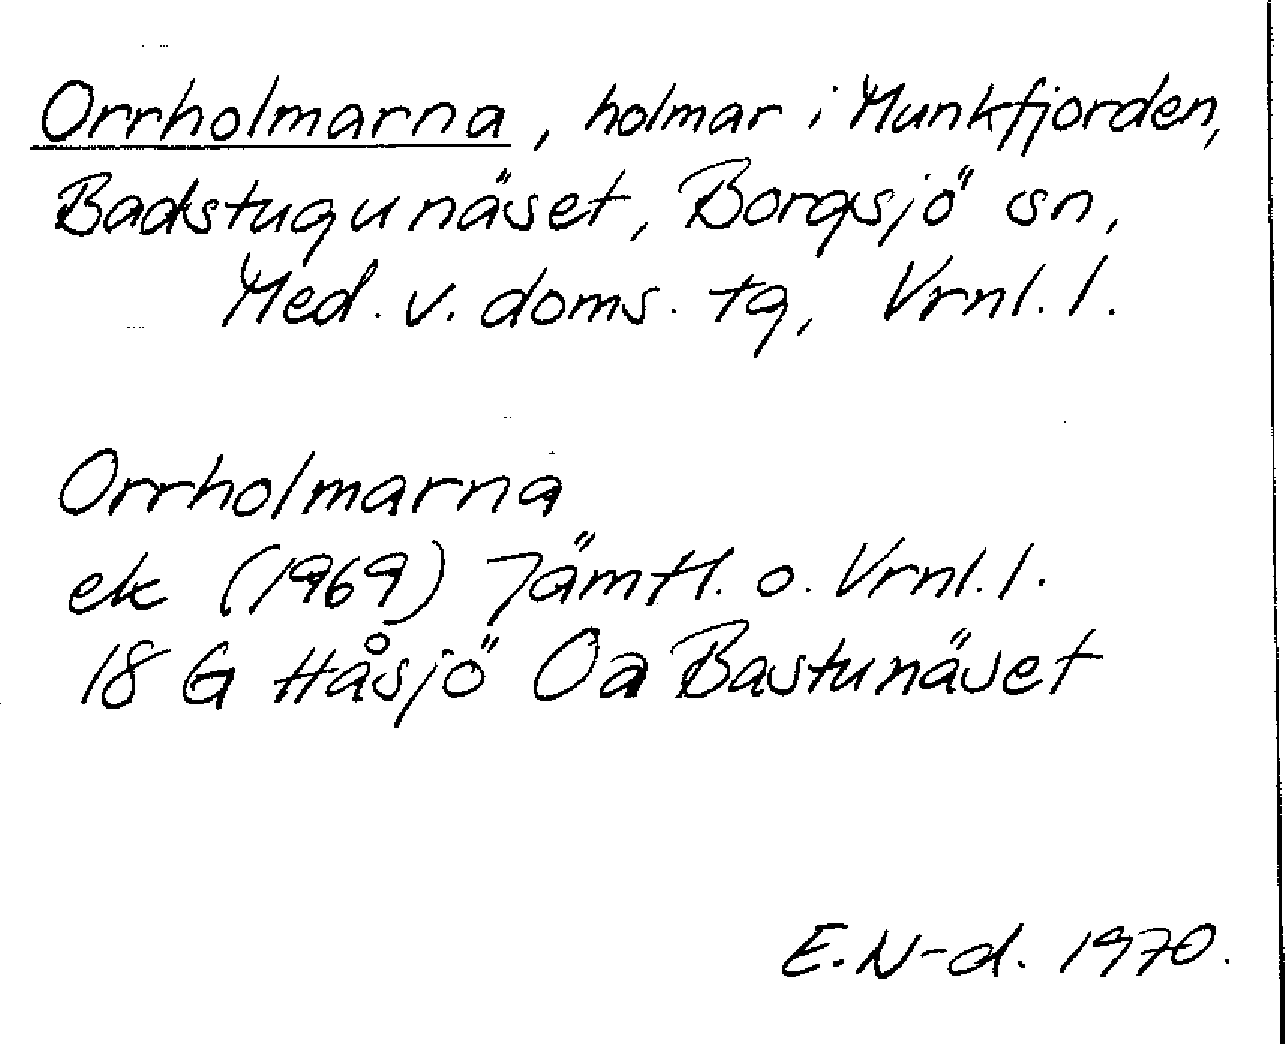 Orrholmarna, holmar i Munkfjorden,
Badstugunäset, Borgsjö sn,
Med. v. doms. tg, Vrnl. l.
Orrholmarna
ek (1969) Jämtl. o. Vrnl. l.
18 G Håsjö Oa Bastunäset
E. N-d. 1970.